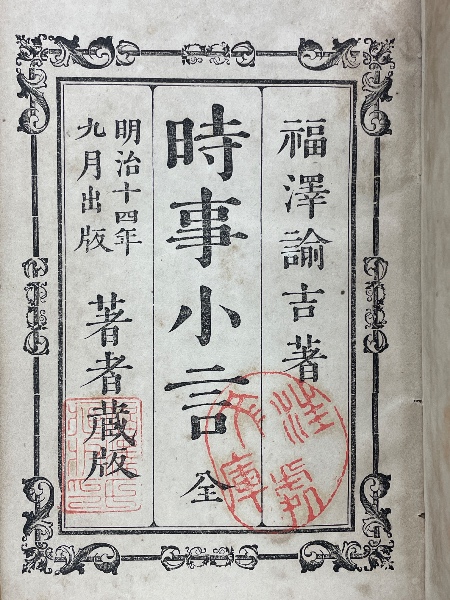 福澤諭吉著
時事小言 全
明治十四年
九月出版
著者蔵版
文庫